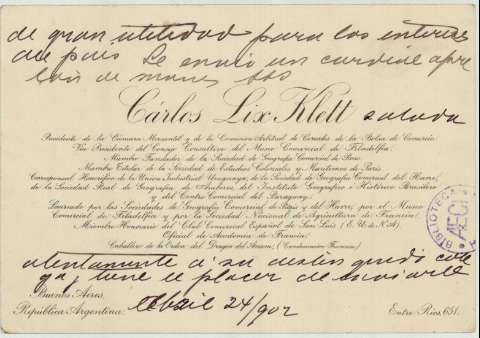 de gran utilidad para los interes
del pais Le envio un cordial apre
ton de manos
Cárlos Lix Klett saluda
Presidente de la Cámara Mercantil y de la Comision Arbitral de Cereales de la Bolsa de Comercio
Vice Presidente del Consejo Consultivo del Museo Comercial de Filadelfia
Miembro Fundador de la Sociedad de Geografía Comercial de Paris
Miembro Titular de la Sociedad de Estudios Coloniales y Marítimos de Paris
Corresponsal Honorífico de la Union Industrial Uruguaya, de la Sociedad de Geografía Comercial del Havre,
de la Sociedad Real de Geografía de Amberes, del Instituto Geográfico é Histórico Brasilero
y del Centro Comercial del Paraguay
Laureado por las Sociedades de Geografía Comercial de Paris y del Havre, por el Museo
Comercial de Filadelfia y por la Sociedad Nacional de Agricultura de Francia
Miembro Honorario del Club Comercial Español de San Luis (E. U. de N. A.)
Oficial de Academia de Francia
Caballero de la Orden del Dragon de Annam, (Condecoracion Francesa)
BIBLIOTECA
atentamente á su distinguido cole
ga, tiene el placer de enviarle
Buenos Aires,
República Argentina: Abril 24/902
Entre Rios, 651.